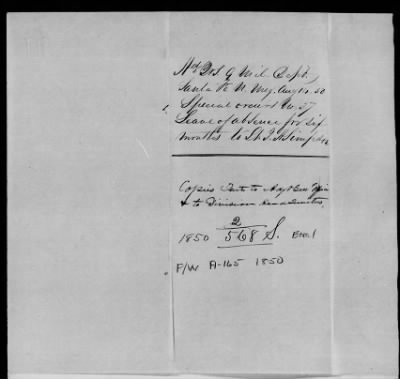 Hd Qrs. 9 Mil. Dept.
Santa Fe N. Mex. Aug 14. 50
Special orders No. 27
Leave of absence for six
months to Lt. J. H. Simpson
Copies Sent to Adjt Gen
& to Division Head Quarters.
2
1850 568 S. Enc. 1
F/W A-165 1850